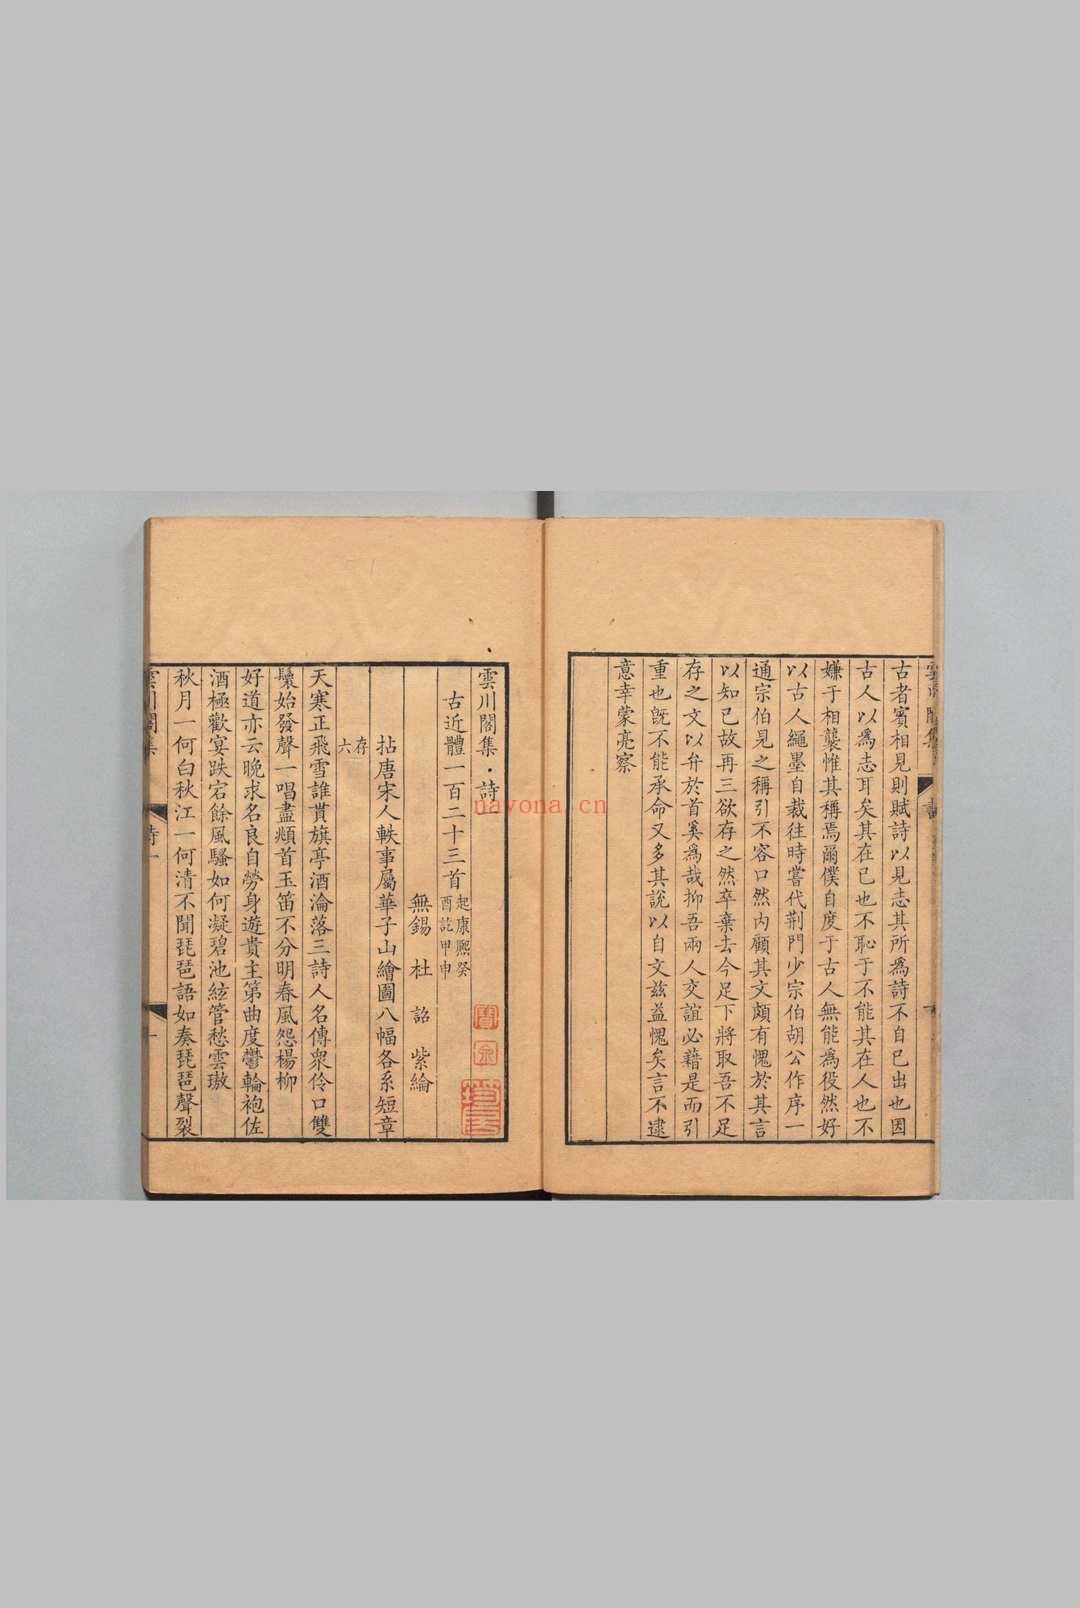 古者賓相見則賦詩以見志其所為詩不自已出也因
古人以為志耳矣其在已也不恥于不能其在人也不
嫌于相襲惟其稱焉爾僕自度于古人無能為役然好
以古人繩墨自裁往時嘗代荆門少宗伯胡公作序一
通宗伯見之稱引不容口然內顧其文頗有愧於其言
以知已故再三欲存之然卒棄去今足下將取吾不足
存之文以弁於首奚為哉抑吾兩人交誼必藉是而引
重也旣不能承命又多其說以自文茲益愧矣言不逮
意幸蒙亮察
雲川閣集 詩一
古近體一百二十三首 起康熙癸
酉訖甲申
無錫 杜 詔 紫綸
拈唐宋人軼事屬華子山繪圖八幅各系短章
存
六
天寒正飛雪誰貰旗亭酒淪落三詩人名傳衆伶口雙
鬟始發聲一唱盡頫首玉笛不分明春風怨楊柳
好道亦云晚求名良自勞身遊貴主第曲度鬱輪袍佐
酒極歡宴跌宕餘風騷如何凝碧池絃管愁雲璈
秋月一何白秋江一何清不聞琵琶語如奏琵琶聲裂
雲川閣集
詩一
一
nayona.cn